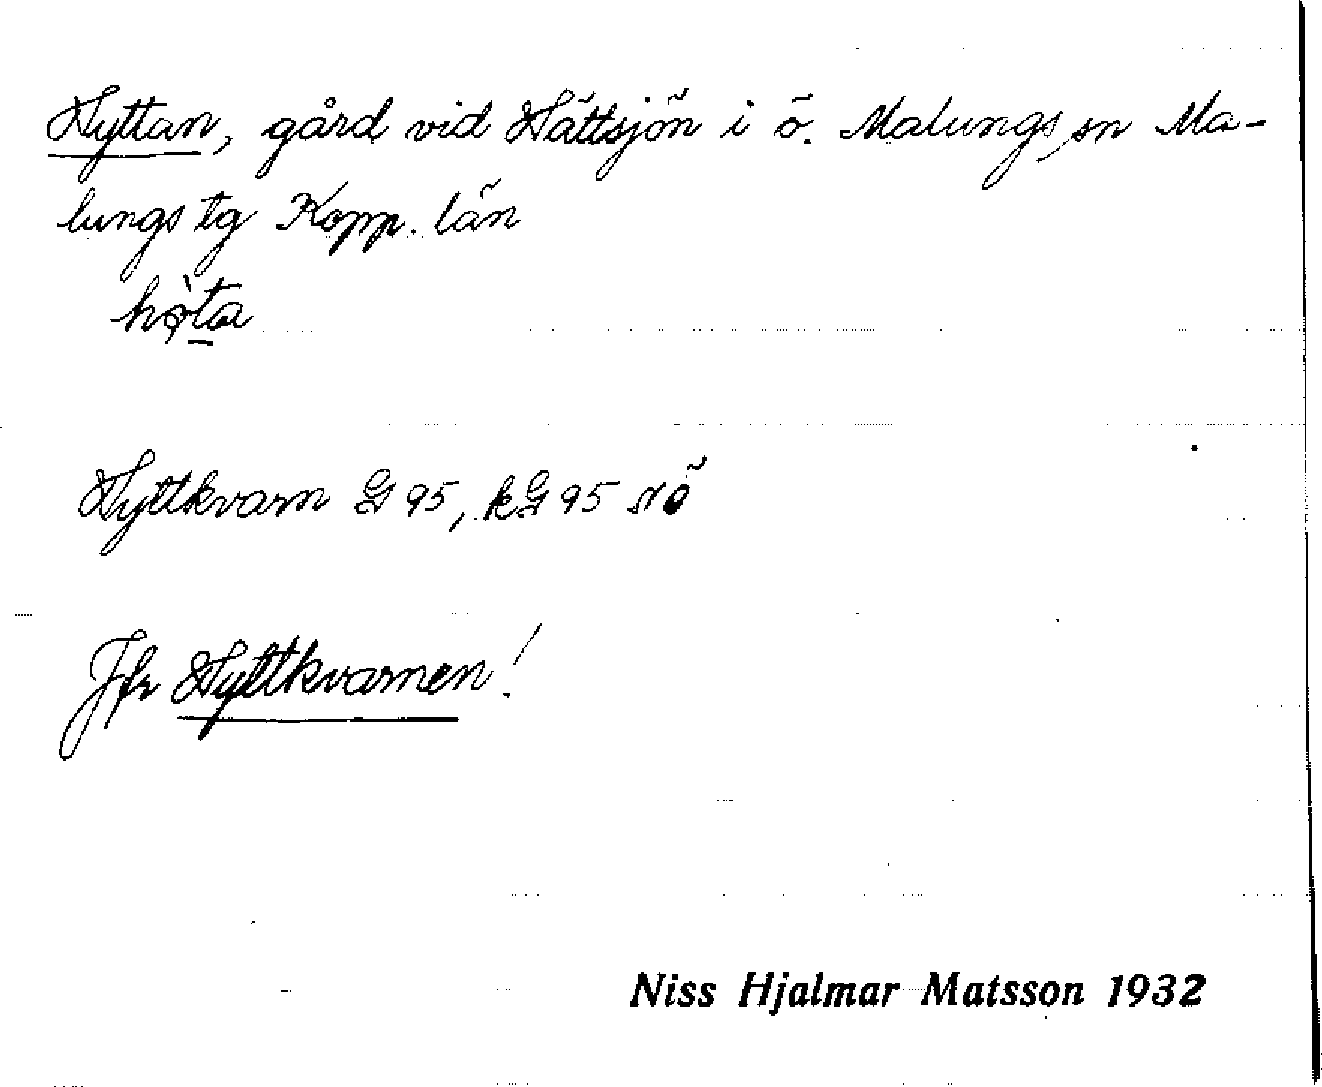 Hyttan, gård vid Hättsjön i ö. Malungs sn Ma-
lungs tg Kopp. län
hø̀ta
Hyttkvarn G 95, kG 95 nö
Jfr Hyttkvarnen!
Niss Hjalmar Matsson 1932